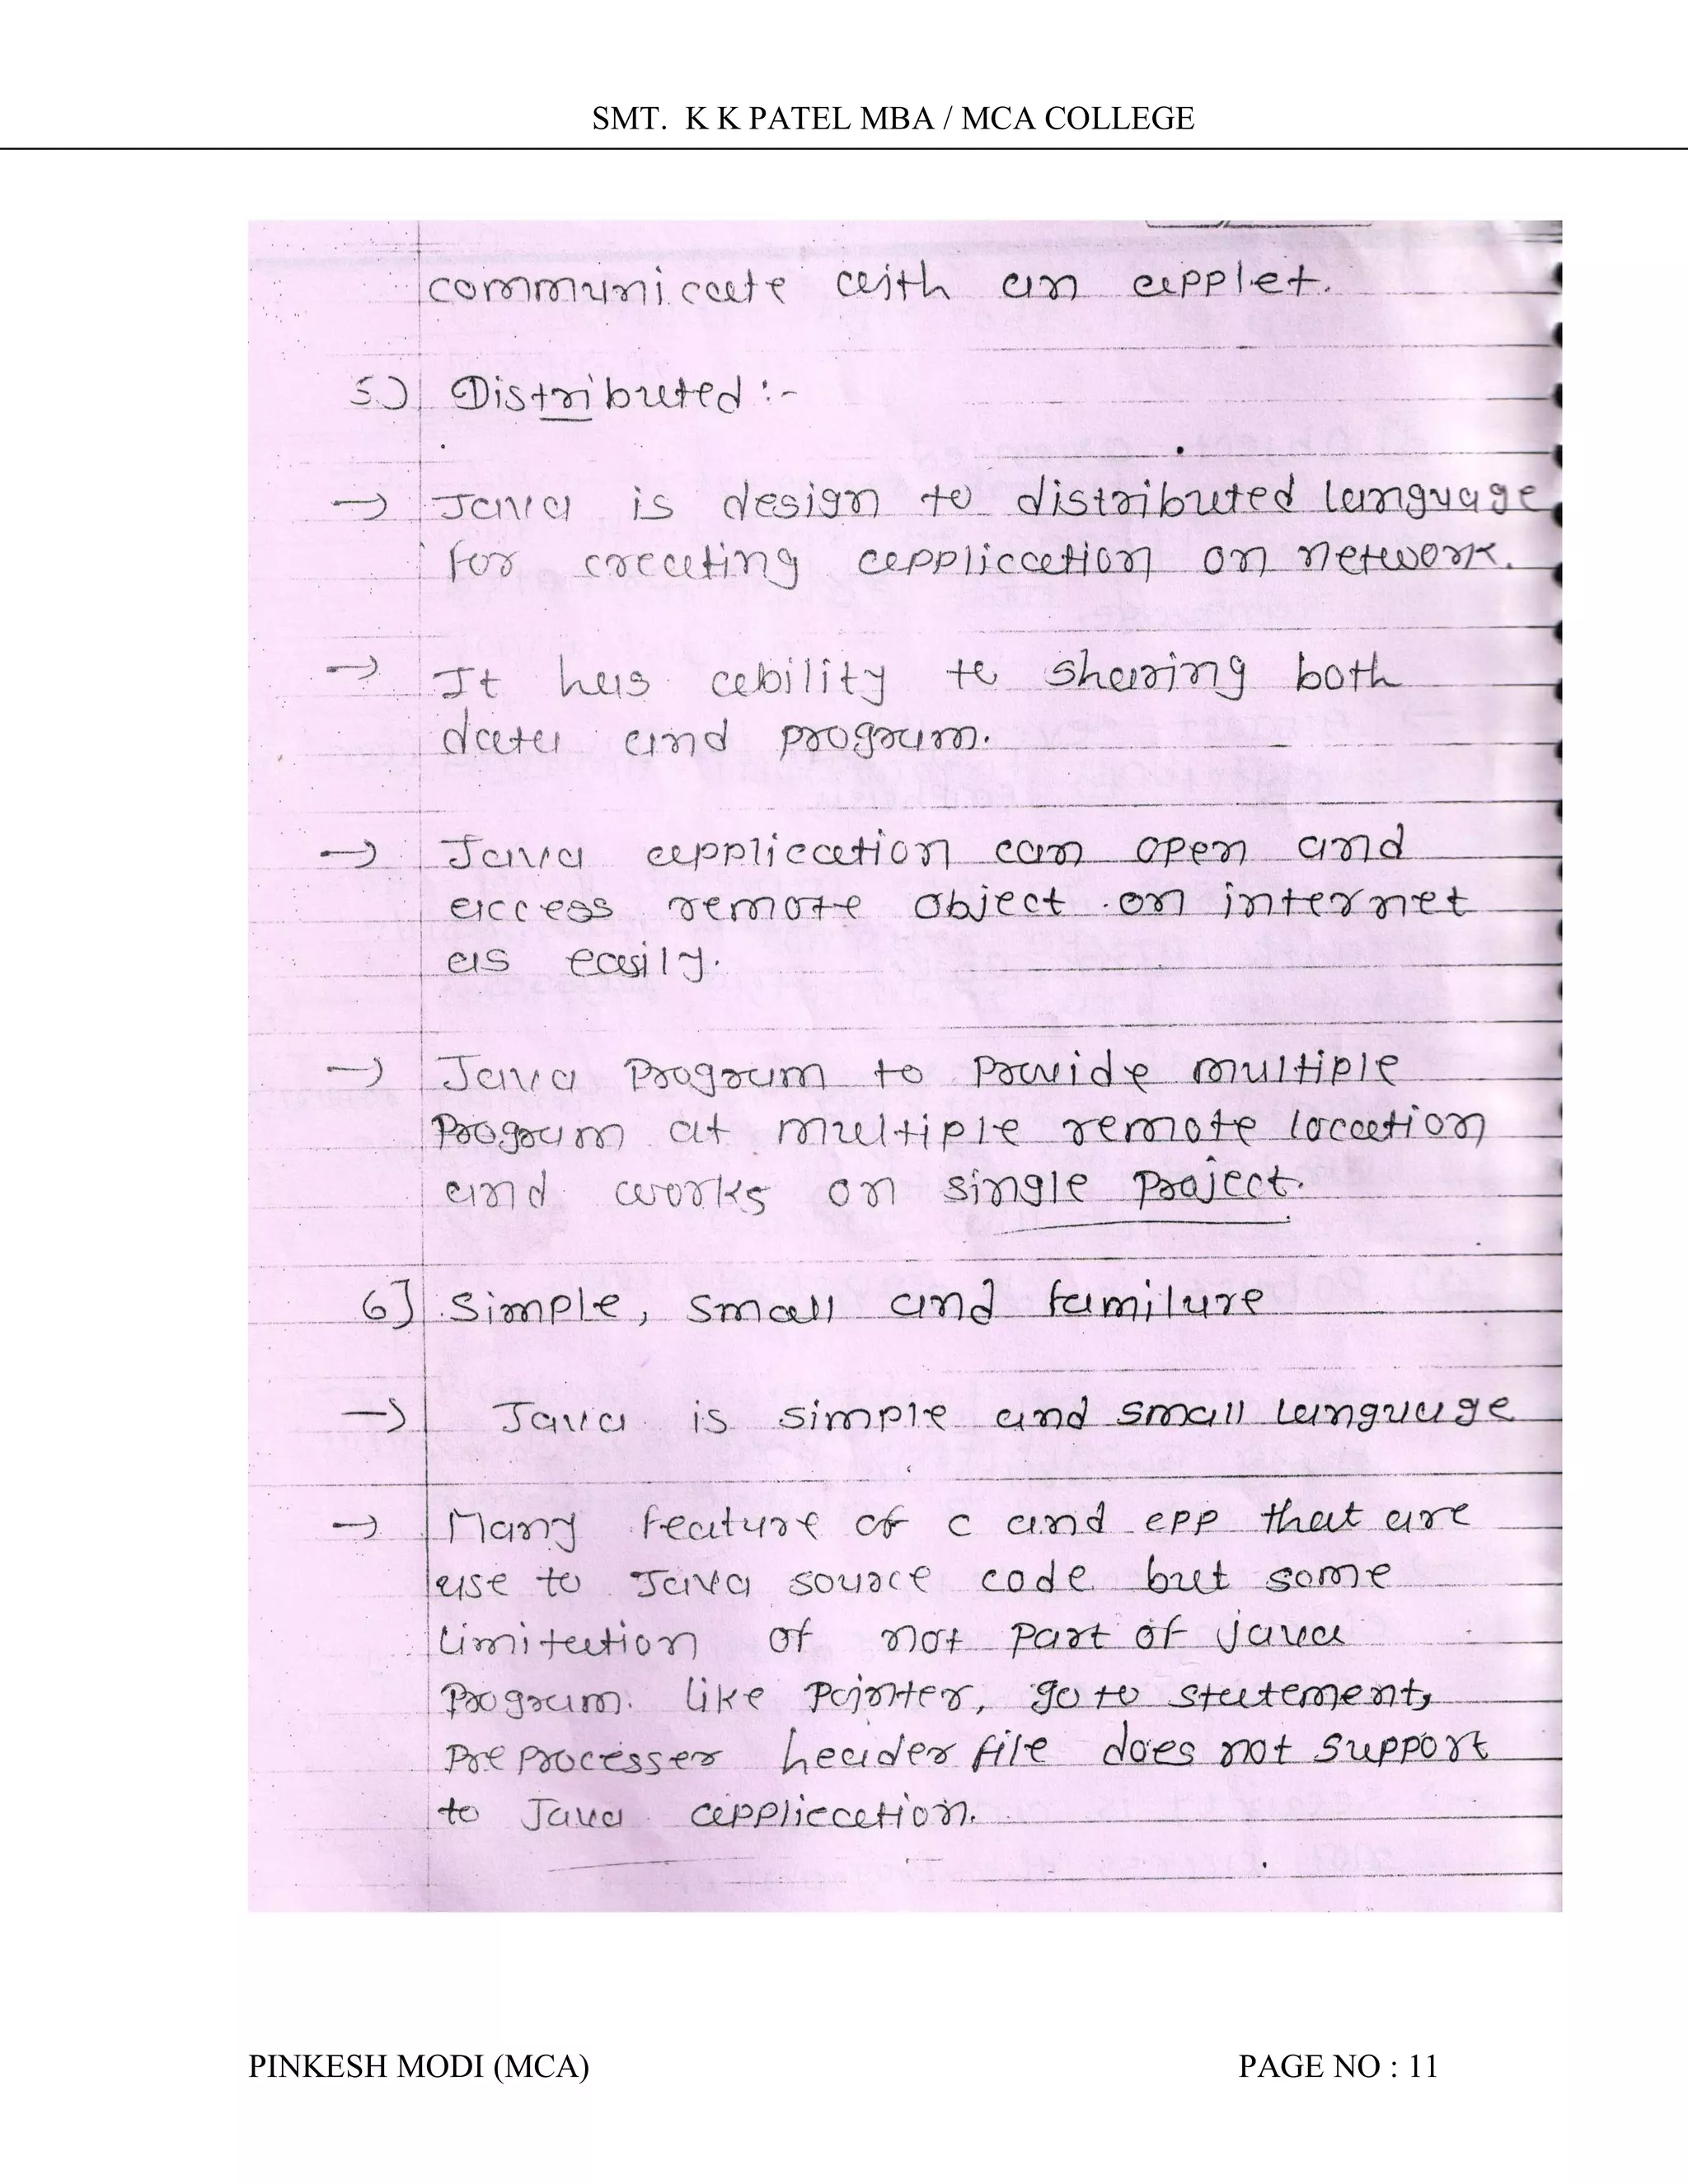 SMT.  K K PATEL MBA / MCA COLLEGE
communicate with an applet.
5) Distributed :-
→ Java is design to distributed language
for creating application on network.
→ It has ability to sharing both
data and program.
→ Java application can open and
access remote object on internet
as easily.
→ Java Program to Provide multiple
Program at multiple remote location
and works on single Project.
6] Simple, small and familure
→ Java is simple and small language
→ Many feature of c and cpp that are
use to Java source code but some
limitation of not part of java
Program. like Pointer, go to statement,
Pre processer header file does not support
to Java application.
PINKESH MODI (MCA) PAGE NO : 11